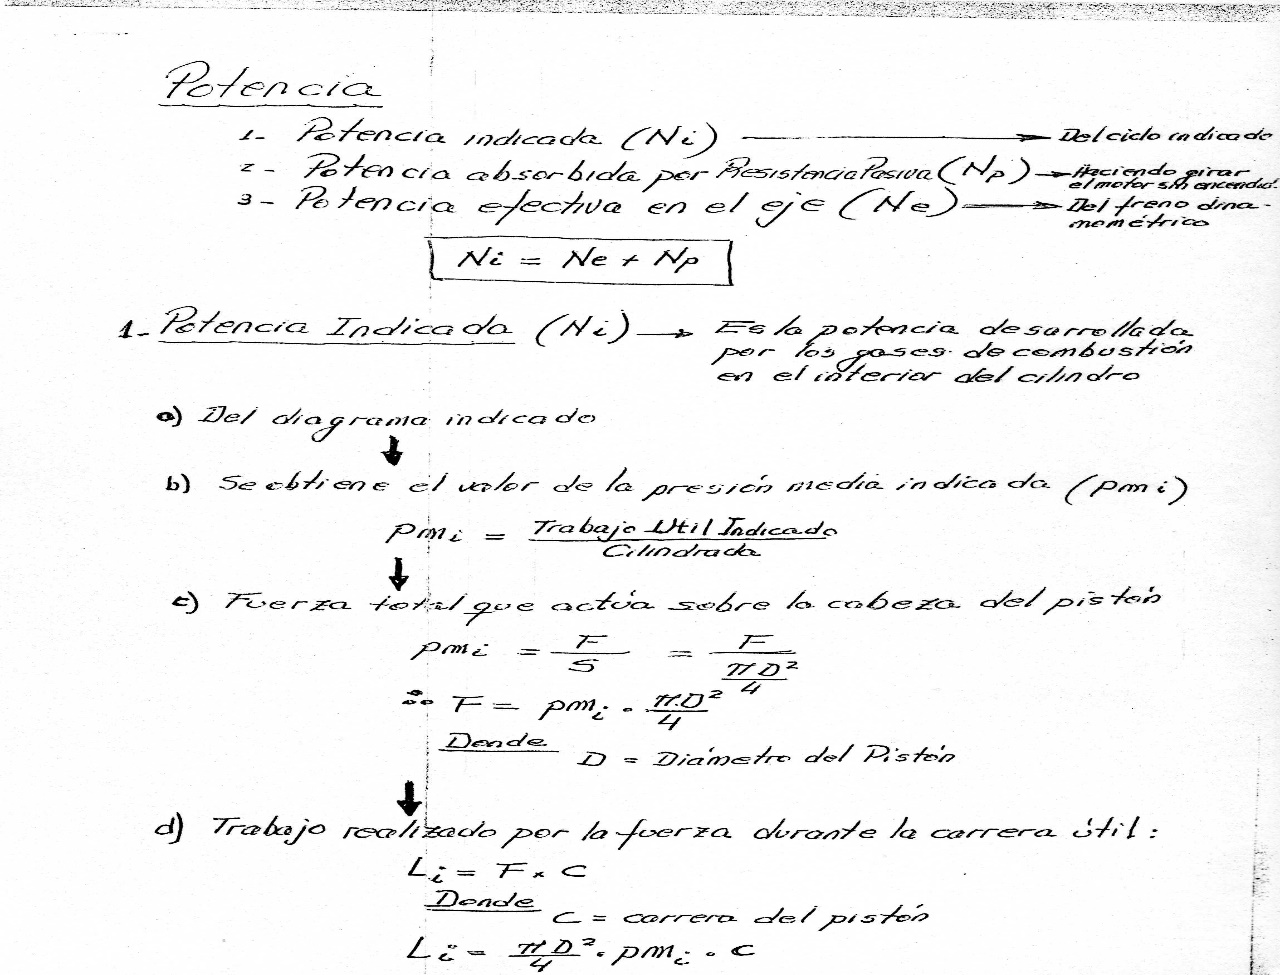 Potencia
1- Potencia indicada (Ni) → Del ciclo indicado
2- Potencia absorbida por Resistencia Pasiva (Np) → Haciendo girar
el motor sin encendid.
3- Potencia efectiva en el eje (Ne) → Del freno dina-
mométrico
Ni = Ne + Np
1- Potencia Indicada (Ni) → Es la potencia desarrollada
por los gases de combustión
en el interior del cilindro
a) Del diagrama indicado
↓
b) Se obtiene el valor de la presión media indicada (pmi)
pmi = Trabajo Util Indicado / Cilindrada
↓
c) Fuerza total que actúa sobre la cabeza del pistón
pmi = F / S = F / (πD² / 4)
∴ F = pmi · πD² / 4
Donde
D = Diámetro del Pistón
↓
d) Trabajo realizado por la fuerza durante la carrera útil:
Li = F x C
Donde
C = carrera del pistón
Li = πD² / 4 · pmi · C